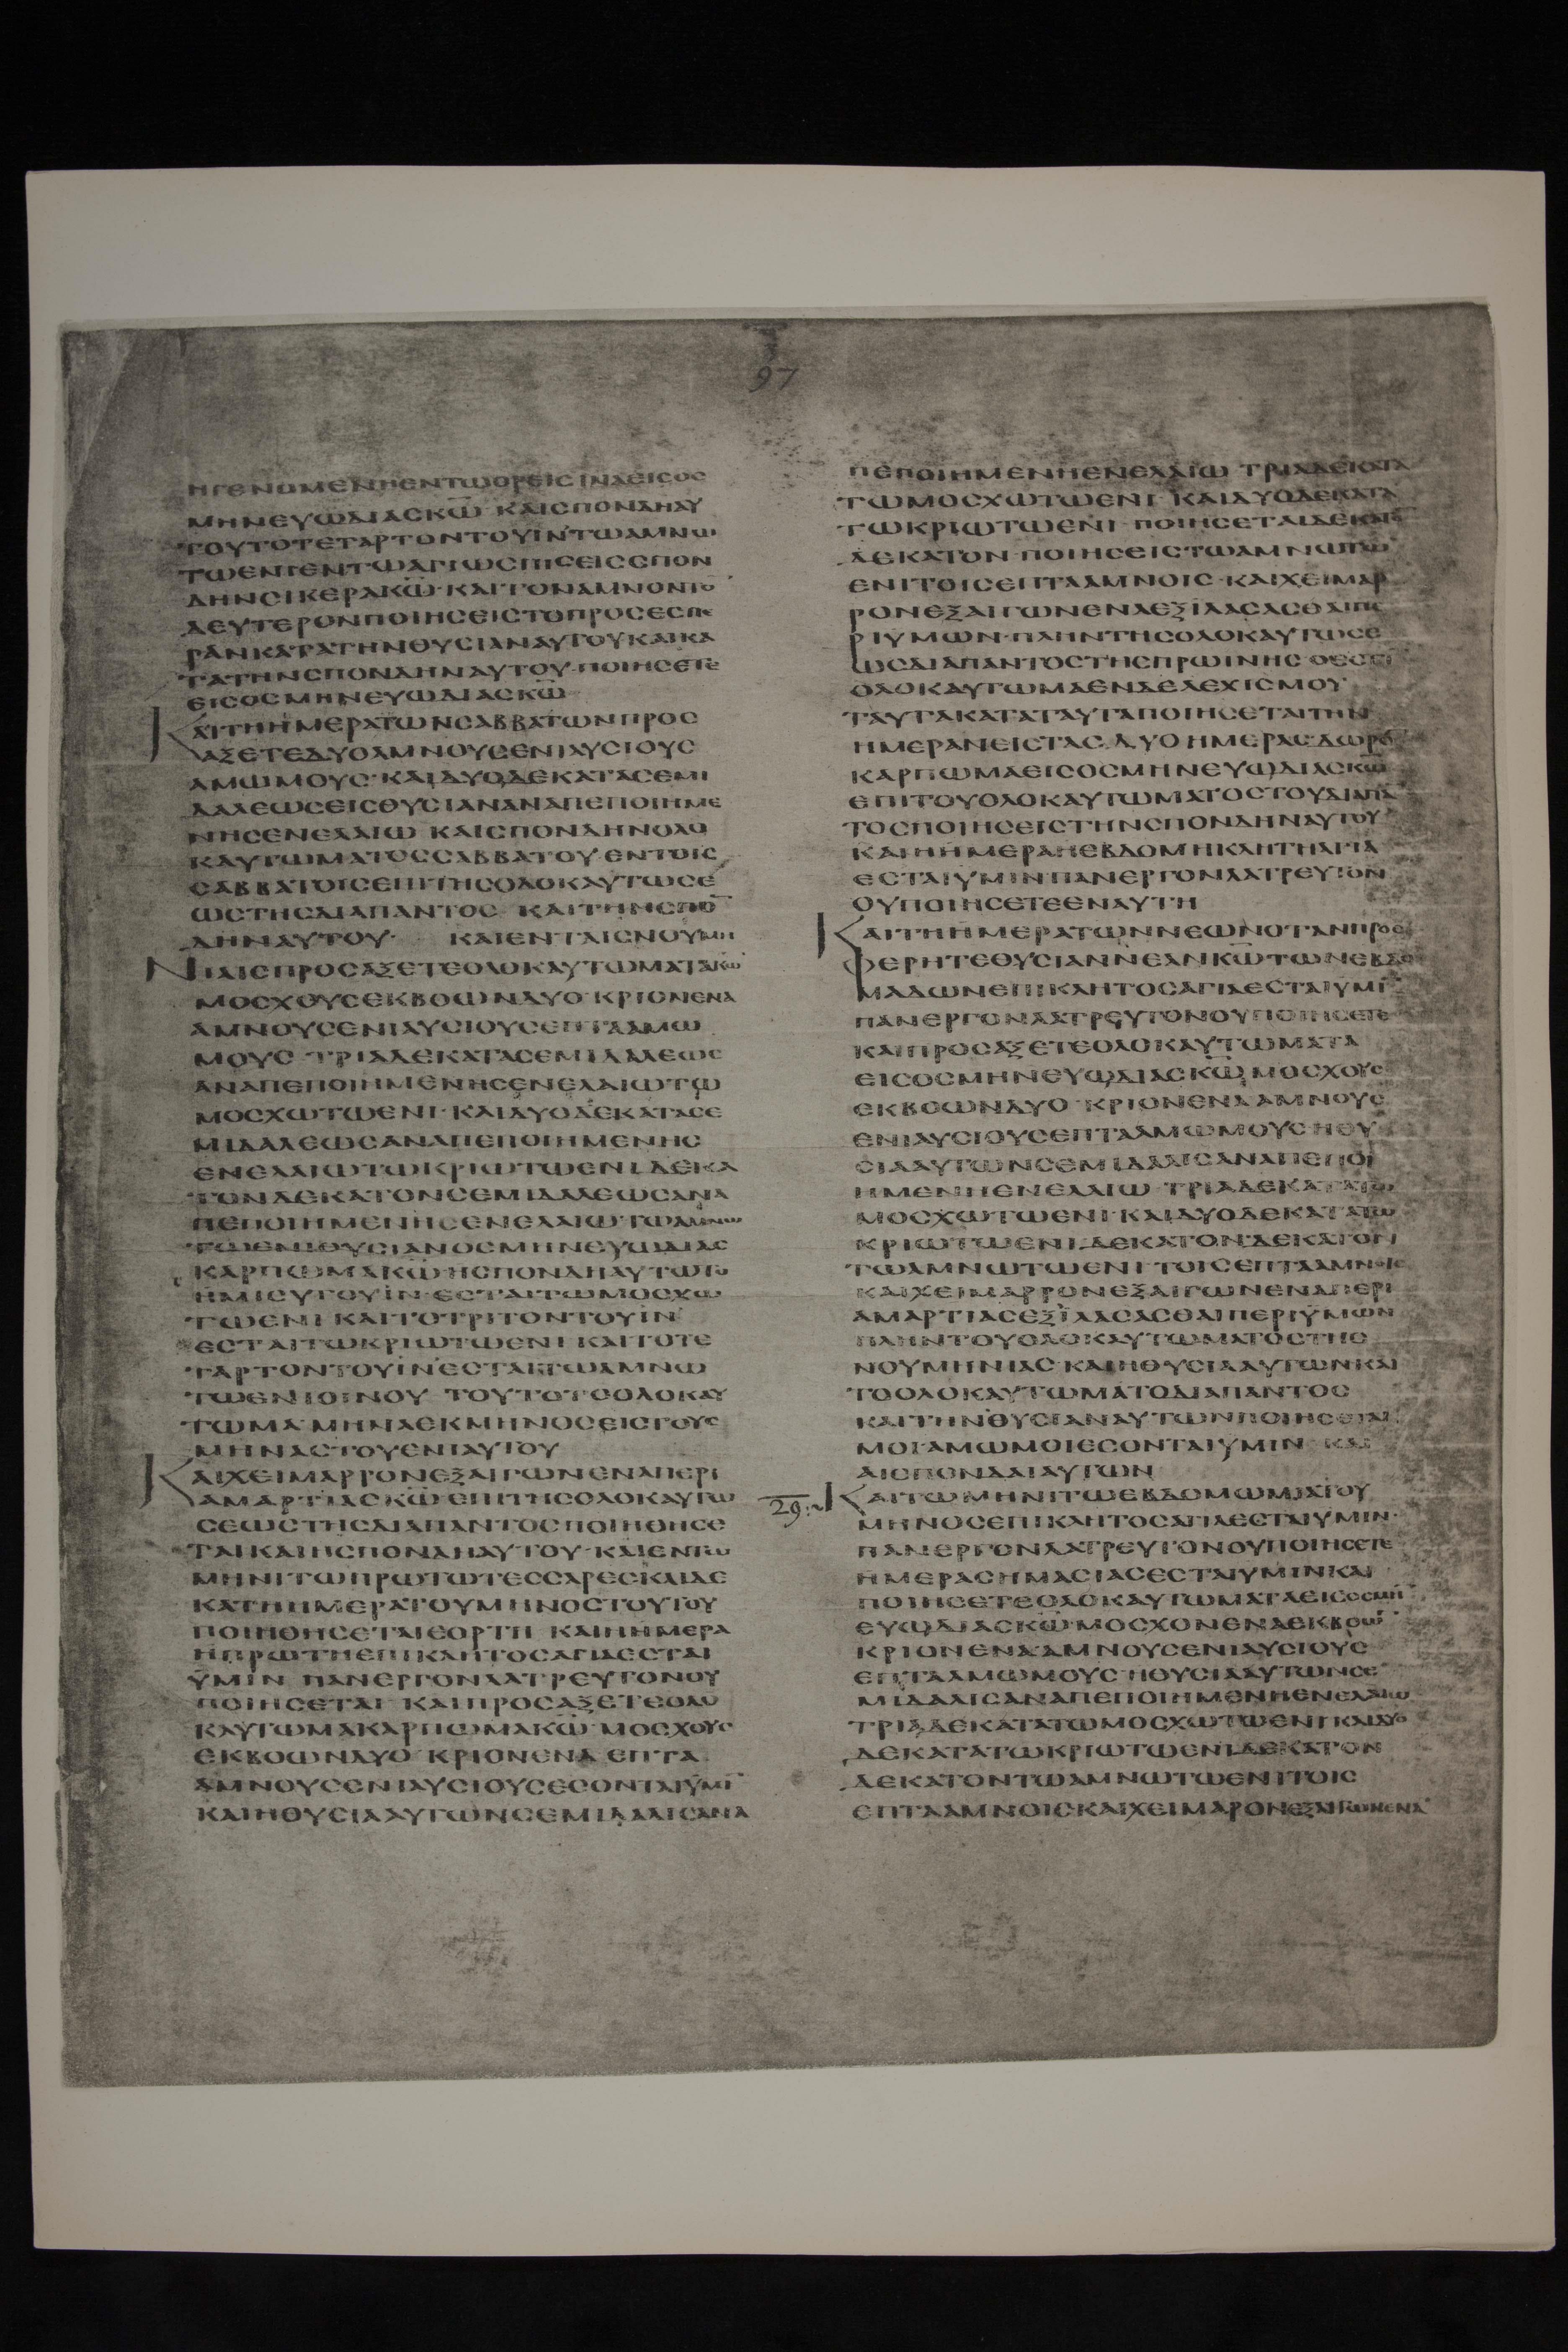 97
ΗΓΕΝΟΜΕΝΗΕΝΤΩΟΡΕΙϹΙΝΑΕΙϹΟϹ
ΜΗΝΕΥΩΔΙΑϹΚΩ̅ ΚΑΙϹΠΟΝΔΗΑΥ
ΤΟΥΤΟΤΕΤΑΡΤΟΝΤΟΥΙΝΤΩΑΜΝΩ
ΤΩΕΝΙΕΝΤΩΑΓΙΩϹΠΙϹΕΙϹϹΠΟΝ
ΔΗΝϹΙΚΕΡΑΚΩ̅·ΚΑΙΤΟΝΑΜΝΟΝΤΟ̅
ΔΕΥΤΕΡΟΝΠΟΙΗϹΕΙϹΤΟΠΡΟϹΕϹΠΕ
ΡΑΝΚΑΤΑΤΗΝΘΥϹΙΑΝΑΥΤΟΥΚΑΙΚΑ
ΤΑΤΗΝϹΠΟΝΔΗΝΑΥΤΟΥ·ΠΟΙΗϹΕΤΕ
ΕΙϹΟϹΜΗΝΕΥΩΔΙΑϹΚΩ̅
ΚΑΙΤΗΗΜΕΡΑΤΩΝϹΑΒΒΑΤΩΝΠΡΟϹ
ΑΞΕΤΕΔΥΟΑΜΝΟΥϹΕΝΙΑΥϹΙΟΥϹ
ΑΜΩΜΟΥϹ·ΚΑΙΔΥΟΔΕΚΑΤΑϹΕΜΙ
ΔΑΛΕΩϹΕΙϹΘΥϹΙΑΝΑΝΑΠΕΠΟΙΗΜΕ
ΝΗϹΕΝΕΛΑΙΩ ΚΑΙϹΠΟΝΔΗΝΟΛΟ
ΚΑΥΤΩΜΑΤΟϹϹΑΒΒΑΤΟΥΕΝΤΟΙϹ
ϹΑΒΒΑΤΟΙϹΕΠΙΤΗϹΟΛΟΚΑΥΤΩϹΕ
ΩϹΤΗϹΔΙΑΠΑΝΤΟϹ ΚΑΙΤΗΝϹΠΟ̅
ΔΗΝΑΥΤΟΥ· ΚΑΙΕΝΤΑΙϹΝΟΥΜΗ
ΝΙΑΙϹΠΡΟϹΑΞΕΤΕΟΛΟΚΑΥΤΩΜΑΤΑΚΩ̅
ΜΟϹΧΟΥϹΕΚΒΟΩΝΔΥΟ·ΚΡΙΟΝΕΝΑ
ΑΜΝΟΥϹΕΝΙΑΥϹΙΟΥϹΕΠΤΑΑΜΩ
ΜΟΥϹ ΤΡΙΑΔΕΚΑΤΑϹΕΜΙΔΑΛΕΩϹ
ΑΝΑΠΕΠΟΙΗΜΕΝΗϹΕΝΕΛΑΙΩΤΩ
ΜΟϹΧΩΤΩΕΝΙ·ΚΑΙΔΥΟΔΕΚΑΤΑϹΕ
ΜΙΔΑΛΕΩϹΑΝΑΠΕΠΟΙΗΜΕΝΗϹ
ΕΝΕΛΑΙΩΤΩΚΡΙΩΤΩΕΝΙΔΕΚΑ
ΤΟΝΔΕΚΑΤΟΝϹΕΜΙΔΑΛΕΩϹΑΝΑ
ΠΕΠΟΙΗΜΕΝΗϹΕΝΕΛΑΙΩΤΩΑΜΝΩ
ΤΩΕΝΙΘΥϹΙΑΝΟϹΜΗΝΕΥΩΔΙΑϹ
ΚΑΡΠΩΜΑΚΩ̅·ΗϹΠΟΝΔΗΑΥΤΩΤΟ
ΗΜΙϹΥΤΟΥΙΝ·ΕϹΤΑΙΤΩΜΟϹΧΩ
ΤΩΕΝΙ ΚΑΙΤΟΤΡΙΤΟΝΤΟΥΙΝ
ΕϹΤΑΙΤΩΚΡΙΩΤΩΕΝΙ ΚΑΙΤΟΤΕ
ΤΑΡΤΟΝΤΟΥΙΝΕϹΤΑΙΤΩΑΜΝΩ
ΤΩΕΝΙΟΙΝΟΥ ΤΟΥΤΟΤΟΟΛΟΚΑΥ
ΤΩΜΑ·ΜΗΝΑΕΚΜΗΝΟϹΕΙϹΤΟΥϹ
ΜΗΝΑϹΤΟΥΕΝΙΑΥΤΟΥ
ΚΑΙΧΕΙΜΑΡΡΟΝΕΞΑΙΓΩΝΕΝΑΠΕΡΙ
ΑΜΑΡΤΙΑϹΚΩ̅ΕΠΙΤΗϹΟΛΟΚΑΥΤΩ
ϹΕΩϹΤΗϹΔΙΑΠΑΝΤΟϹΠΟΙΗΘΗϹΕ
ΤΑΙΚΑΙΗϹΠΟΝΔΗΑΥΤΟΥ·ΚΑΙΕΝΤΩ
ΜΗΝΙΤΩΠΡΩΤΩΤΕϹϹΑΡΕϹΚΑΙΔΕ
ΚΑΤΗΗΜΕΡΑΤΟΥΜΗΝΟϹΤΟΥΤΟΥ
ΠΟΙΗΘΗϹΕΤΑΙΕΟΡΤΗ ΚΑΙΗΗΜΕΡΑ
ΗΠΡΩΤΗΕΠΙΚΛΗΤΟϹΑΓΙΑΕϹΤΑΙ
ΥΜΙΝ ΠΑΝΕΡΓΟΝΛΑΤΡΕΥΤΟΝΟΥ
ΠΟΙΗϹΕΤΑΙ ΚΑΙΠΡΟϹΑΞΕΤΕΟΛΟ
ΚΑΥΤΩΜΑΚΑΡΠΩΜΑΚΩ̅·ΜΟϹΧΟΥϹ
ΕΚΒΟΩΝΔΥΟ ΚΡΙΟΝΕΝΑ ΕΠΤΑ
ΑΜΝΟΥϹΕΝΙΑΥϹΙΟΥϹΕϹΟΝΤΑΙΥΜΙ̅
ΚΑΙΗΘΥϹΙΑΑΥΤΩΝϹΕΜΙΔΑΛΙϹΑΝΑ
ΠΕΠΟΙΗΜΕΝΗΕΝΕΛΑΙΩ ΤΡΙΑΔΕΚΑΤΑ
ΤΩΜΟϹΧΩΤΩΕΝΙ ΚΑΙΔΥΟΔΕΚΑΤΑ
ΤΩΚΡΙΩΤΩΕΝΙ·ΠΟΙΗϹΕΤΑΙΔΕΚΑΤΟ̅
ΔΕΚΑΤΟΝ·ΠΟΙΗϹΕΙϹΤΩΑΜΝΩΤΩ
ΕΝΙΤΟΙϹΕΠΤΑΑΜΝΟΙϹ·ΚΑΙΧΕΙΜΑΡ
ΡΟΝΕΞΑΙΓΩΝΕΝΑΕΞΙΛΑϹΑϹΘΑΙΠΕ
ΡΙΥΜΩΝ·ΠΛΗΝΤΗϹΟΛΟΚΑΥΤΩϹΕ
ΩϹΔΙΑΠΑΝΤΟϹΤΗϹΠΡΩΙΝΗϹ ΟΕϹΤΙ
ΟΛΟΚΑΥΤΩΜΑΕΝΔΕΛΕΧΙϹΜΟΥ
ΤΑΥΤΑΚΑΤΑΤΑΥΤΑΠΟΙΗϹΕΤΑΙΤΗΝ
ΗΜΕΡΑΝΕΙϹΤΑϹΔΥΟΗΜΕΡΑϹΔΩΡΟ̅
ΚΑΡΠΩΜΑΕΙϹΟϹΜΗΝΕΥΩΔΙΑϹΚΩ̅
ΕΠΙΤΟΥΟΛΟΚΑΥΤΩΜΑΤΟϹΤΟΥΔΙΑΠΑ̅
ΤΟϹΠΟΙΗϹΕΙϹΤΗΝϹΠΟΝΔΗΝΑΥΤΟΥ
ΚΑΙΗΗΜΕΡΑΗΕΒΔΟΜΗΚΛΗΤΗΑΓΙΑ
ΕϹΤΑΙΥΜΙΝΠΑΝΕΡΓΟΝΛΑΤΡΕΥΤΟΝ
ΟΥΠΟΙΗϹΕΤΕΕΝΑΥΤΗ
ΚΑΙΤΗΗΜΕΡΑΤΩΝΝΕΩΝΟΤΑΝΠΡΟϹ
ΦΕΡΗΤΕΘΥϹΙΑΝΝΕΑΝΚΩ̅ΤΩΝΕΒΔΟ
ΜΑΔΩΝΕΠΙΚΛΗΤΟϹΑΓΙΑΕϹΤΑΙΥΜΙ̅
ΠΑΝΕΡΓΟΝΛΑΤΡΕΥΤΟΝΟΥΠΟΙΗϹΕΤΕ
ΚΑΙΠΡΟϹΑΞΕΤΕΟΛΟΚΑΥΤΩΜΑΤΑ
ΕΙϹΟϹΜΗΝΕΥΩΔΙΑϹΚΩ̅ ΜΟϹΧΟΥϹ
ΕΚΒΟΩΝΔΥΟ ΚΡΙΟΝΕΝΑ ΑΜΝΟΥϹ
ΕΝΙΑΥϹΙΟΥϹΕΠΤΑΑΜΩΜΟΥϹΗΘΥ
ϹΙΑΑΥΤΩΝϹΕΜΙΔΑΛΙϹΑΝΑΠΕΠΟΙ
ΗΜΕΝΗΕΝΕΛΑΙΩ ΤΡΙΑΔΕΚΑΤΑΤΩ
ΜΟϹΧΩΤΩΕΝΙ·ΚΑΙΔΥΟΔΕΚΑΤΑΤΩ
ΚΡΙΩΤΩΕΝΙ·ΔΕΚΑΤΟΝΔΕΚΑΤΟΝ
ΤΩΑΜΝΩΤΩΕΝΙ ΤΟΙϹΕΠΤΑΑΜΝΟΙϹ
ΚΑΙΧΕΙΜΑΡΡΟΝΕΞΑΙΓΩΝΕΝΑΠΕΡΙ
ΑΜΑΡΤΙΑϹΕΞΙΛΑϹΑϹΘΑΙΠΕΡΙΥΜΩΝ
ΠΛΗΝΤΟΥΟΛΟΚΑΥΤΩΜΑΤΟϹΤΗϹ
ΝΟΥΜΗΝΙΑϹ·ΚΑΙΗΘΥϹΙΑΑΥΤΩΝΚΑΙ
ΤΟΟΛΟΚΑΥΤΩΜΑΤΟΔΙΑΠΑΝΤΟϹ
ΚΑΙΤΗΝΘΥϹΙΑΝΑΥΤΩΝΠΟΙΗϹΕΤΑΙ
ΜΟΙΑΜΩΜΟΙΕϹΟΝΤΑΙΥΜΙΝ ΚΑΙ
ΑΙϹΠΟΝΔΑΙΑΥΤΩΝ
29:~ ΚΑΙΤΩΜΗΝΙΤΩΕΒΔΟΜΩΜΙΑΤΟΥ
ΜΗΝΟϹΕΠΙΚΛΗΤΟϹΑΓΙΑΕϹΤΑΙΥΜΙΝ·
ΠΑΝΕΡΓΟΝΛΑΤΡΕΥΤΟΝΟΥΠΟΙΗϹΕΤΕ
ΗΜΕΡΑϹΗΜΑϹΙΑϹΕϹΤΑΙΥΜΙΝΚΑΙ
ΠΟΙΗϹΕΤΕΟΛΟΚΑΥΤΩΜΑΤΑΕΙϹΟϹΜΗ̅
ΕΥΩΔΙΑϹΚΩ̅·ΜΟϹΧΟΝΕΝΑΕΚΒΟΩ̅
ΚΡΙΟΝΕΝΑ·ΑΜΝΟΥϹΕΝΙΑΥϹΙΟΥϹ
ΕΠΤΑΑΜΩΜΟΥϹ·ΗΘΥϹΙΑΑΥΤΩΝϹΕ
ΜΙΔΑΛΙϹΑΝΑΠΕΠΟΙΗΜΕΝΗΕΝΕΛΑΙΩ
ΤΡΙΑΔΕΚΑΤΑΤΩΜΟϹΧΩΤΩΕΝΙΚΑΙΔΥΟ
ΔΕΚΑΤΑΤΩΚΡΙΩΤΩΕΝΙΔΕΚΑΤΟΝ
ΔΕΚΑΤΟΝΤΩΑΜΝΩΤΩΕΝΙΤΟΙϹ
ΕΠΤΑΑΜΝΟΙϹΚΑΙΧΕΙΜΑΡΟΝΕΞΑΙΓΩΝΕΝΑ